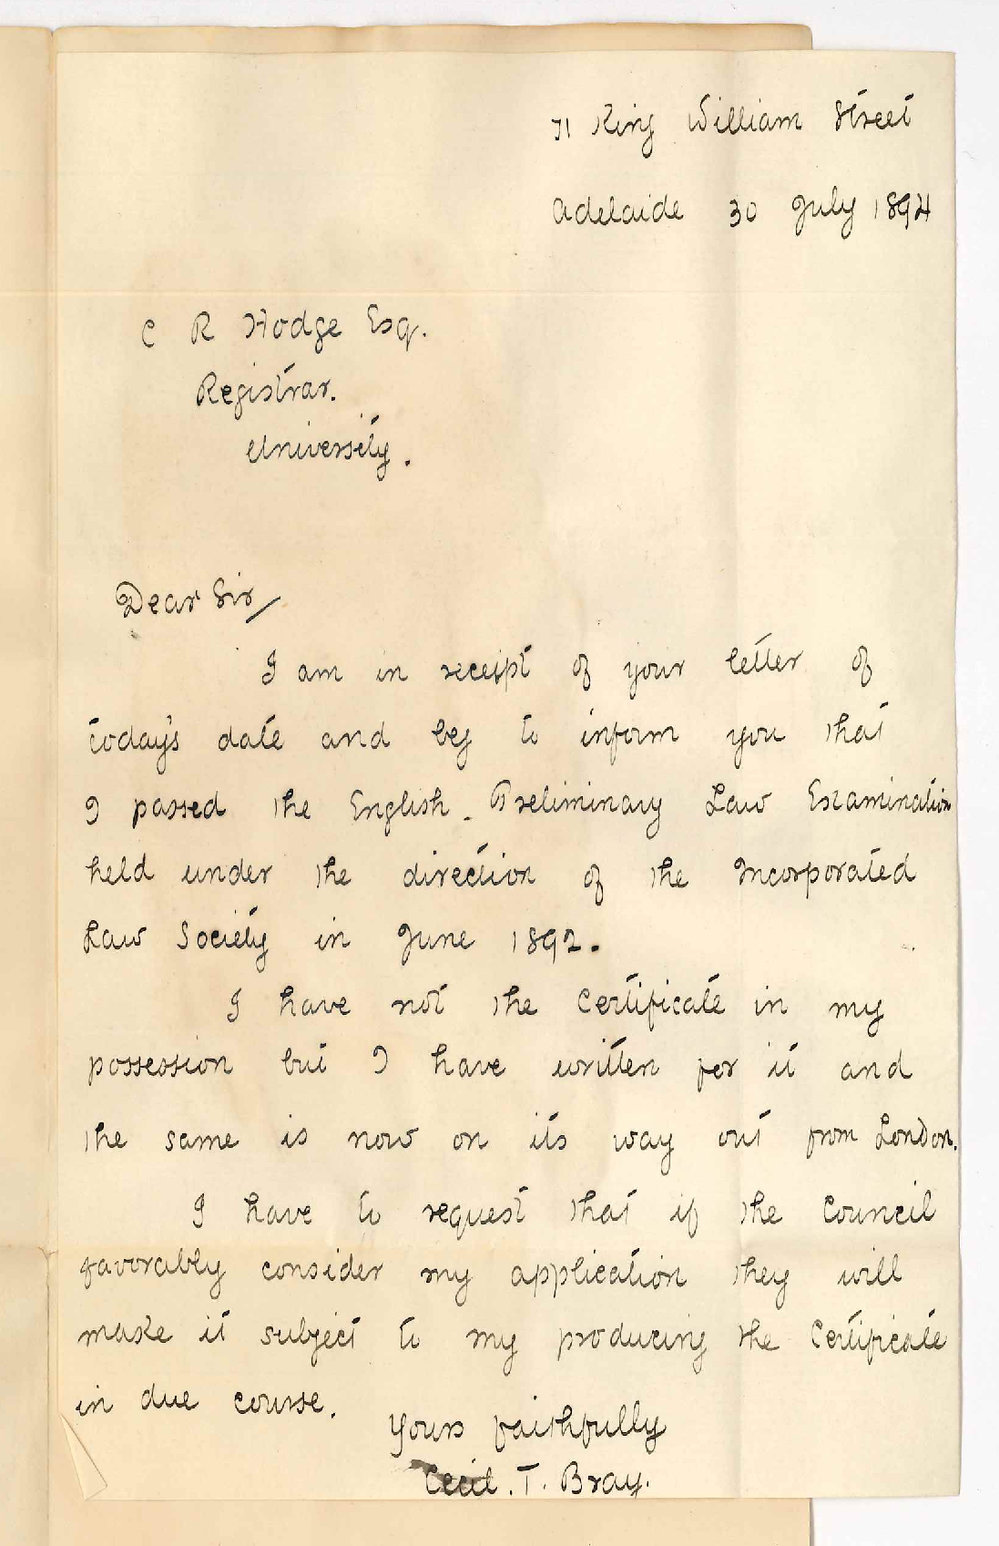 71 King William Street
Adelaide 30 July 1894
C R Hodge Esq.
Registrar.
University.
Dear Sir/
I am in receipt of your letter of
today's date and beg to inform you that
I passed the English Preliminary Law Examination
held under the direction of the Incorporated
Law Society in June 1892.
I have not the Certificate in my
possession but I have written for it and
the same is now on its way out from London.
I have to request that if the Council
favorably consider my application they will
make it subject to my producing the Certificate
in due course.
Yours faithfully
Cecil. T. Bray.